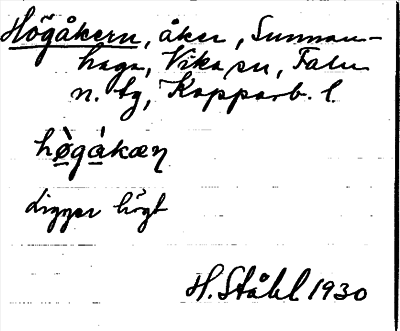 Högåkern, åker, Sunnan-
haga, Vika sn, Falu
n. tg, Kopparb. l.
hø̀gàkæṇ
Ligger högt
H. Ståhl 1930